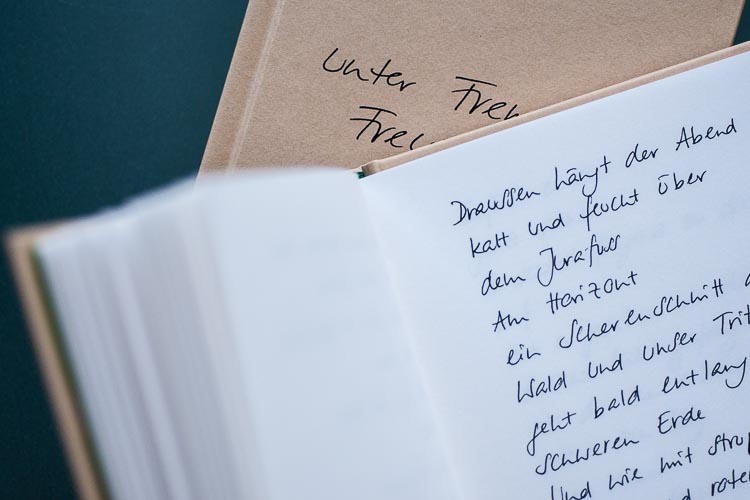 Unter
Draussen hängt der Abend
kalt und feucht über
dem Jurafuss
Am Horizont
ein Scherenschnitt
Wald und unser
geht bald entlang
schweren Erde
Und wie mit